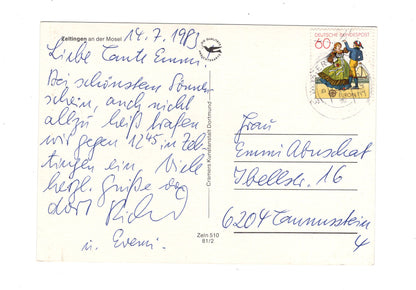 Zeltingen an der Mosel
14.7.1983
Liebe Tante Emmi.
Bei schönstem Sonnen
schein, auch nicht
allzu heiß trafen
wir gegen 12⁴⁵ in Zel-
tingen ein. Viele
herzl. Grüße von
dort Richard
u. Evemi.
Cramers Kunstanstalt Dortmund
Zeln 510
81/2
DEUTSCHE BUNDESPOST
60
Frau
Emmi Abuschat
Ibellstr. 16
6204 Taunusstein
4